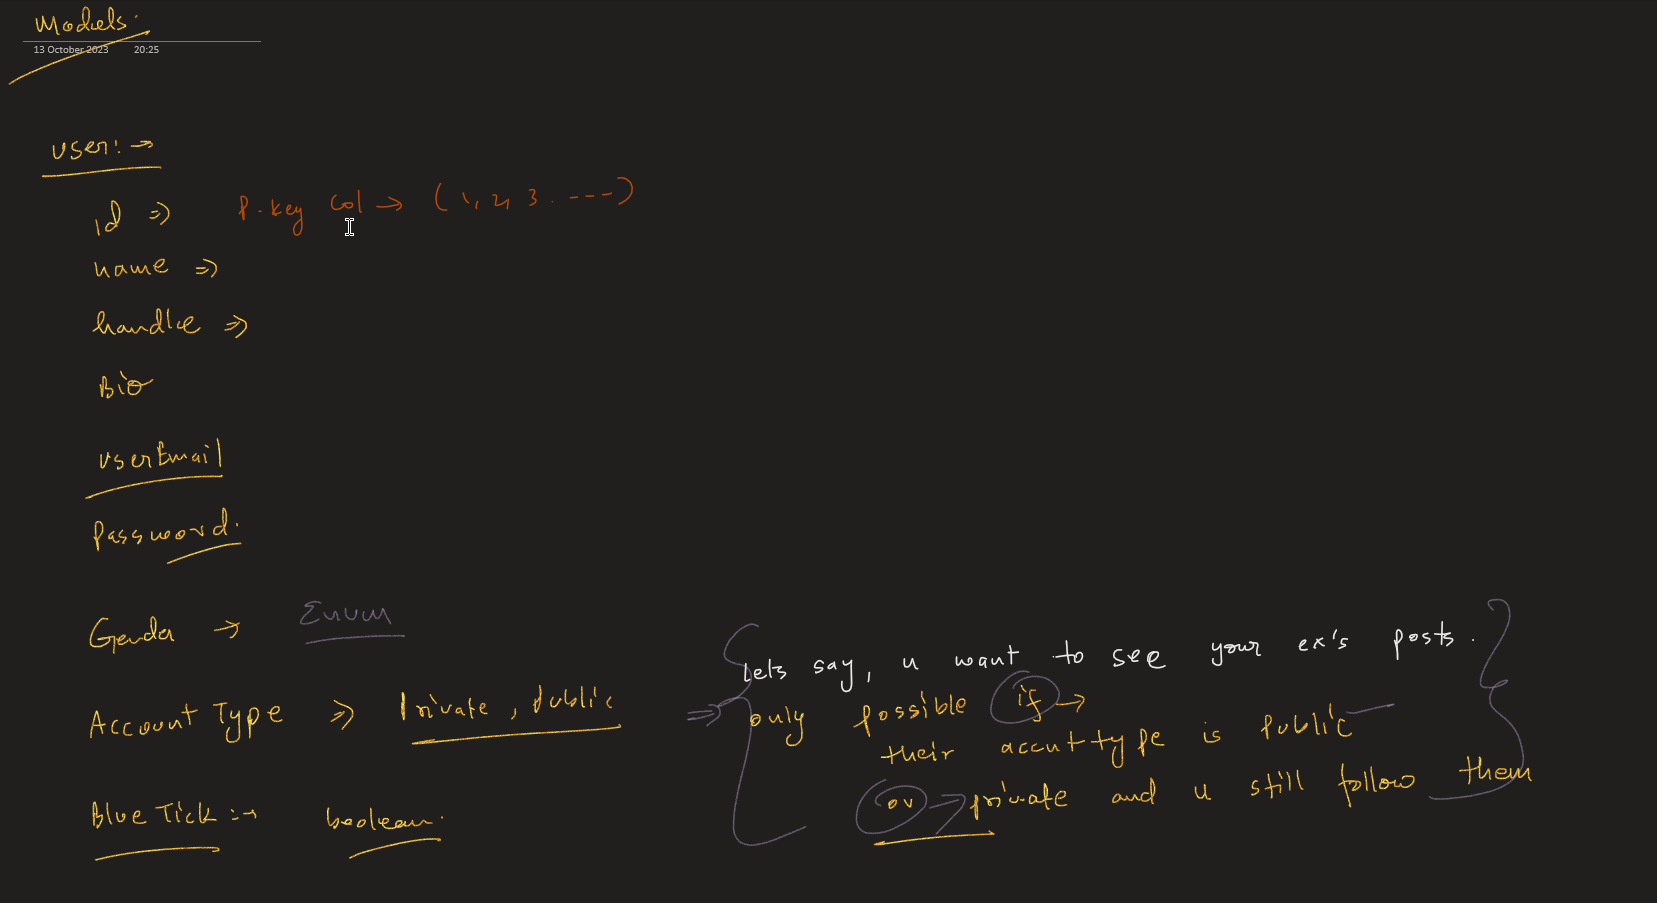 Models:
13 October 2023 20:25
user: →
id ⇒ P.key Col → (1, 2, 3. ---)
name ⇒
handle ⇒
Bio
userEmail
Password.
Gender → Enum
Account Type ⇒ Private, Public
Blue Tick :→ boolean.
⇒ lets say, u want to see your ex's posts.
only possible if →
their accunt type is Public
or → private and u still follow them